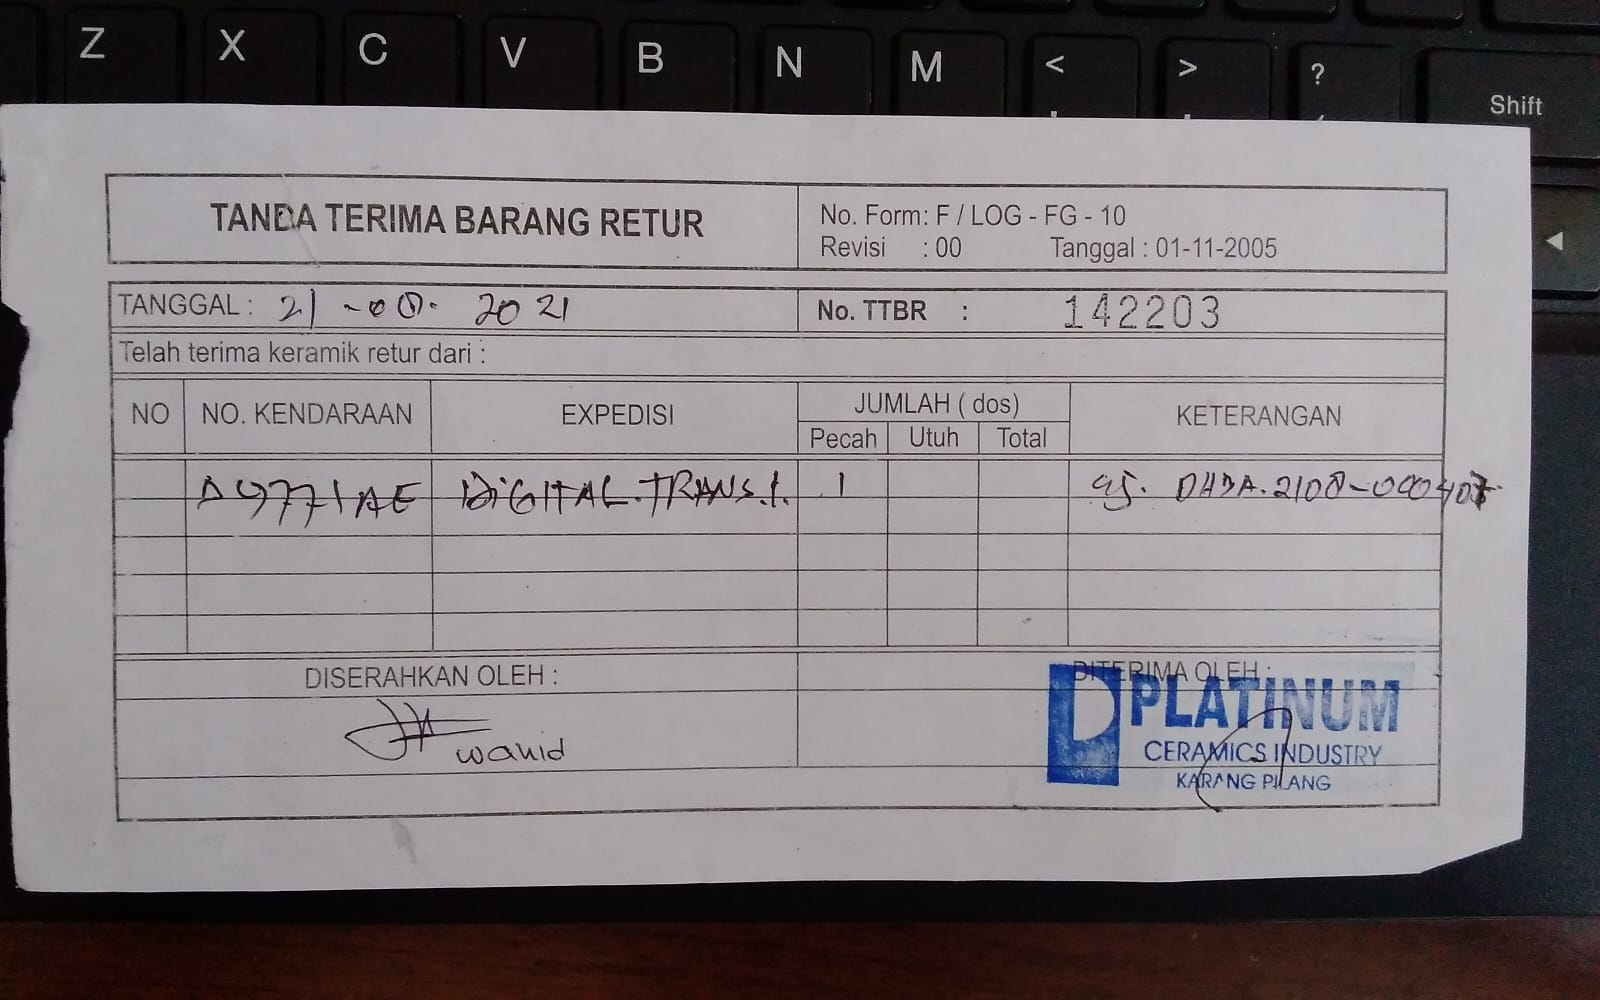 Z X C V B N M < > ?
Shift
TANDA TERIMA BARANG RETUR
No. Form: F / LOG - FG - 10
Revisi : 00 Tanggal : 01-11-2005
TANGGAL : 21 -08- 2021
No. TTBR : 142203
Telah terima keramik retur dari :
NO NO. KENDARAAN EXPEDISI JUMLAH ( dos) KETERANGAN
Pecah Utuh Total
DIGITAL.TRANS.I. 1 DHDA.2108-000407
DISERAHKAN OLEH : DITERIMA OLEH :
wahid
PLATINUM
CERAMICS INDUSTRY
KARANG PILANG